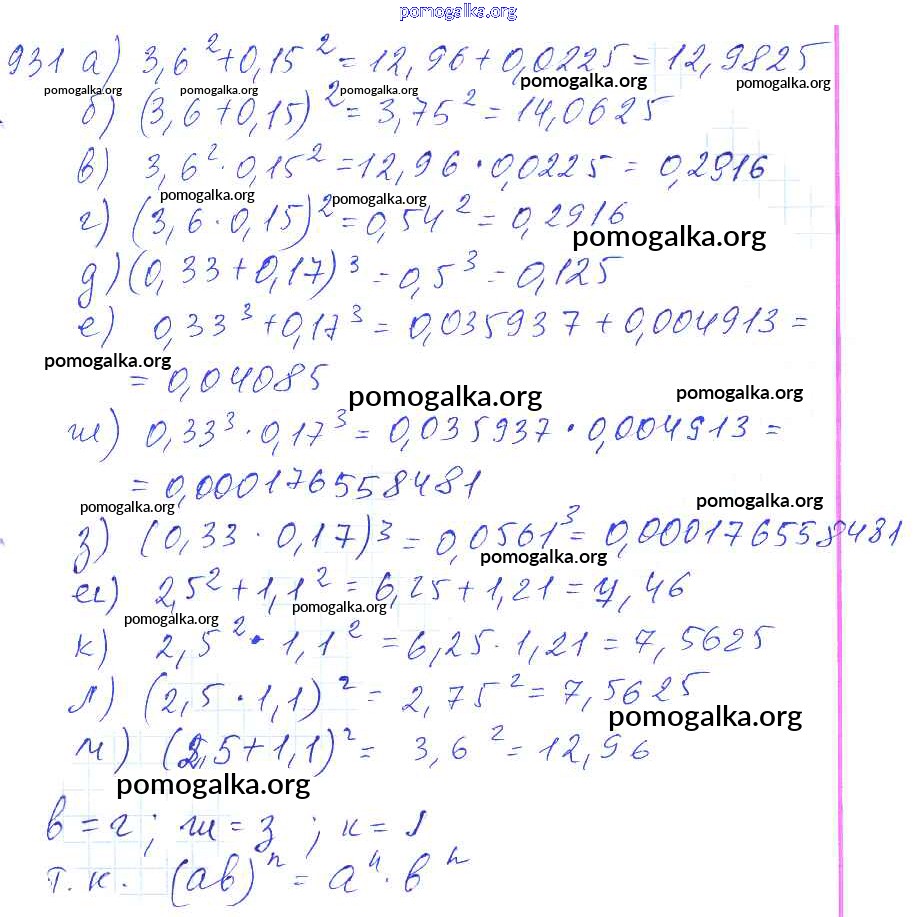 pomogalka.org
931 а) 3,6² + 0,15² = 12,96 + 0,0225 = 12,9825
pomogalka.org pomogalka.org pomogalka.org pomogalka.org pomogalka.org
б) (3,6 + 0,15)² = 3,75² = 14,0625
в) 3,6² · 0,15² = 12,96 · 0,0225 = 0,2916
pomogalka.org pomogalka.org
г) (3,6 · 0,15)² = 0,54² = 0,2916
pomogalka.org
д) (0,33 + 0,17)³ = 0,5³ = 0,125
е) 0,33³ + 0,17³ = 0,035937 + 0,004913 =
pomogalka.org
= 0,04085
pomogalka.org pomogalka.org
ж) 0,33³ · 0,17³ = 0,035937 · 0,004913 =
= 0,000176558481
pomogalka.org pomogalka.org
з) (0,33 · 0,17)³ = 0,0561³ = 0,000176558481
pomogalka.org
и) 2,5² + 1,1² = 6,25 + 1,21 = 7,46
pomogalka.org pomogalka.org
к) 2,5² · 1,1² = 6,25 · 1,21 = 7,5625
л) (2,5 · 1,1)² = 2,75² = 7,5625
pomogalka.org
м) (2,5 + 1,1)² = 3,6² = 12,96
pomogalka.org
в = г; ж = з; к = л
т.к. (ab)ⁿ = aⁿ · bⁿ